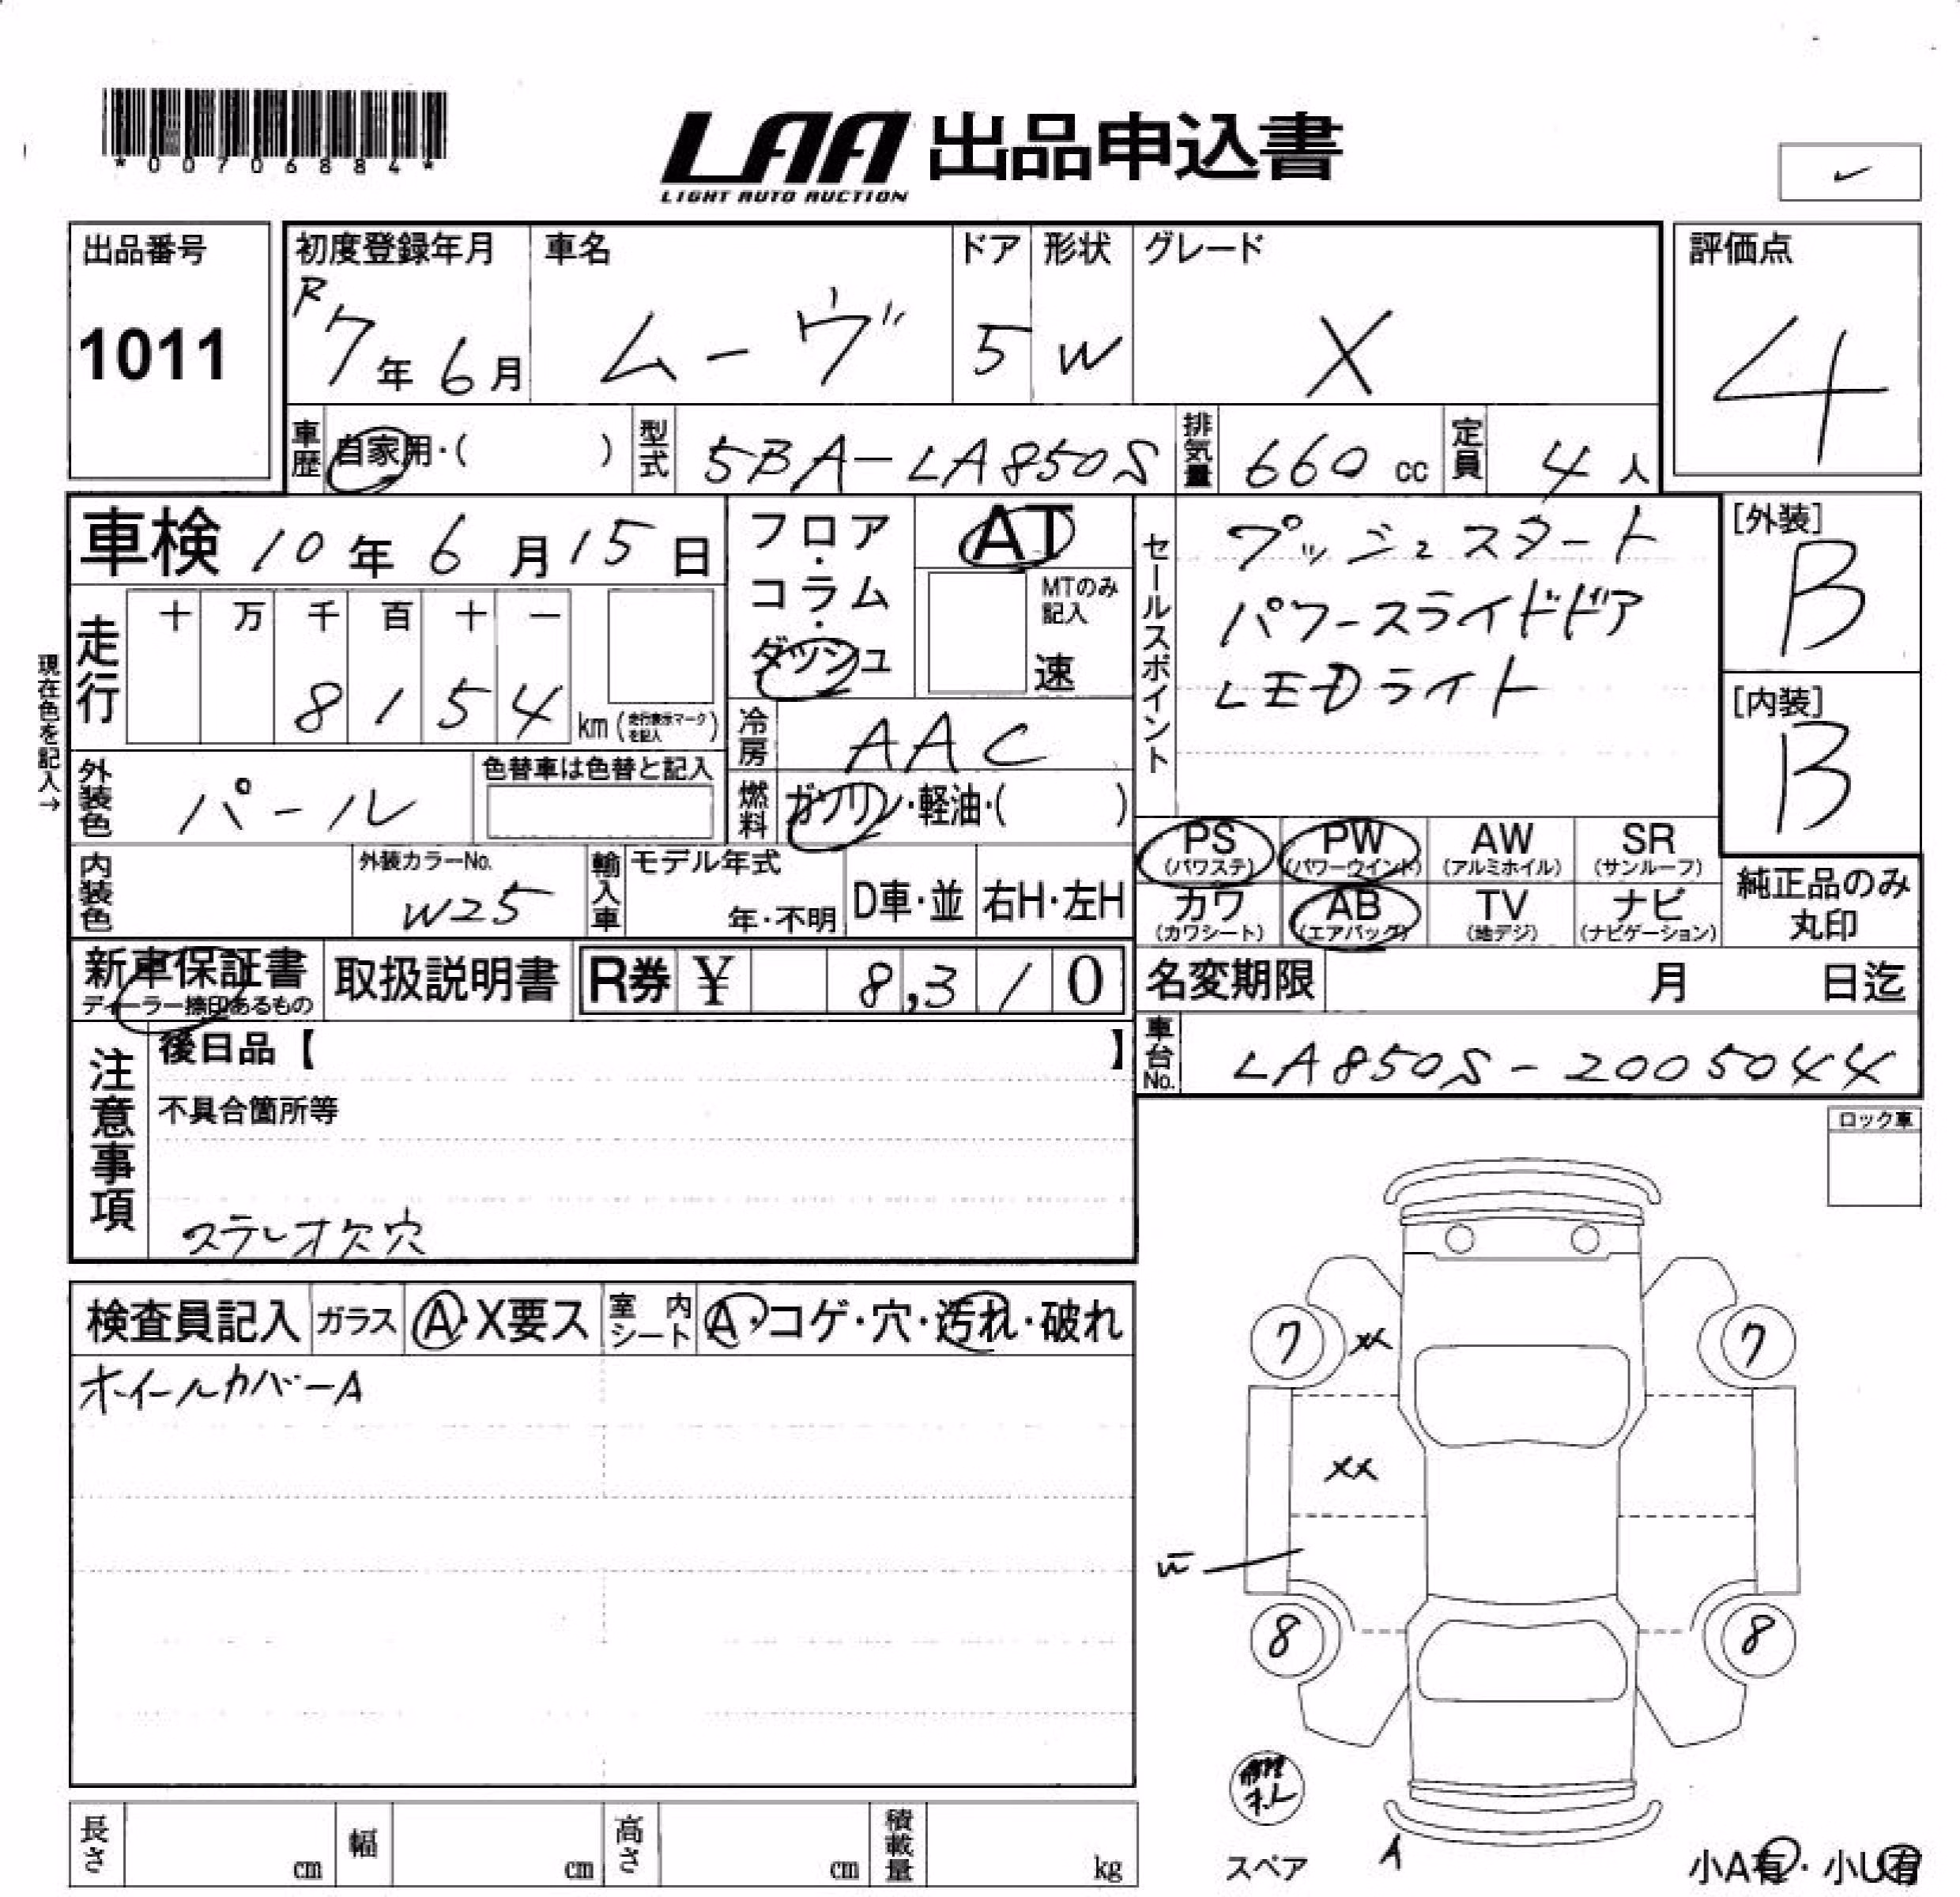 *00706884*
LAA 出品申込書
LIGHT AUTO AUCTION
出品番号
1011
初度登録年月
R7年6月
車名
ムーヴ
ドア
5
形状
W
グレード
X
評価点
4
車歴
自家用・( )
型式
5BA-LA850S
排気量
660 cc
定員
4人
車検 10年6月15日
フロア・コラム・ダッシュ
AT
MTのみ記入
速
セールスポイント
プッシュスタート
パワースライドドア
LEDライト
[外装]
B
[内装]
B
現在色を記入→
走行
十 万 千 百 十 一
8 1 5 4
km (走行表示マークを記入)
冷房
AAC
外装色
パール
色替車は色替と記入
燃料
ガソリン・軽油・( )
PS
(パワステ)
PW
(パワーウインド)
AW
(アルミホイル)
SR
(サンルーフ)
カワ
(カワシート)
AB
(エアバッグ)
TV
(地デジ)
ナビ
(ナビゲーション)
純正品のみ
丸印
内装色
外装カラーNo.
W25
輸入車
モデル年式
年・不明
D車・並
右H・左H
新車保証書
ディーラー捺印あるもの
取扱説明書
R券 ¥ 8,310
名変期限 月 日迄
車台No.
LA850S-2005044
注意事項
後日品【 】
不具合箇所等
ステレオ欠穴
ロック車
検査員記入
ガラス
A・X要ス
室内シート
A・コゲ・穴・汚れ・破れ
ホイールカバーA
7
XX
7
XX
8
8
スペア
A
小A有・小U有
長さ cm
幅 cm
高さ cm
積載量 kg